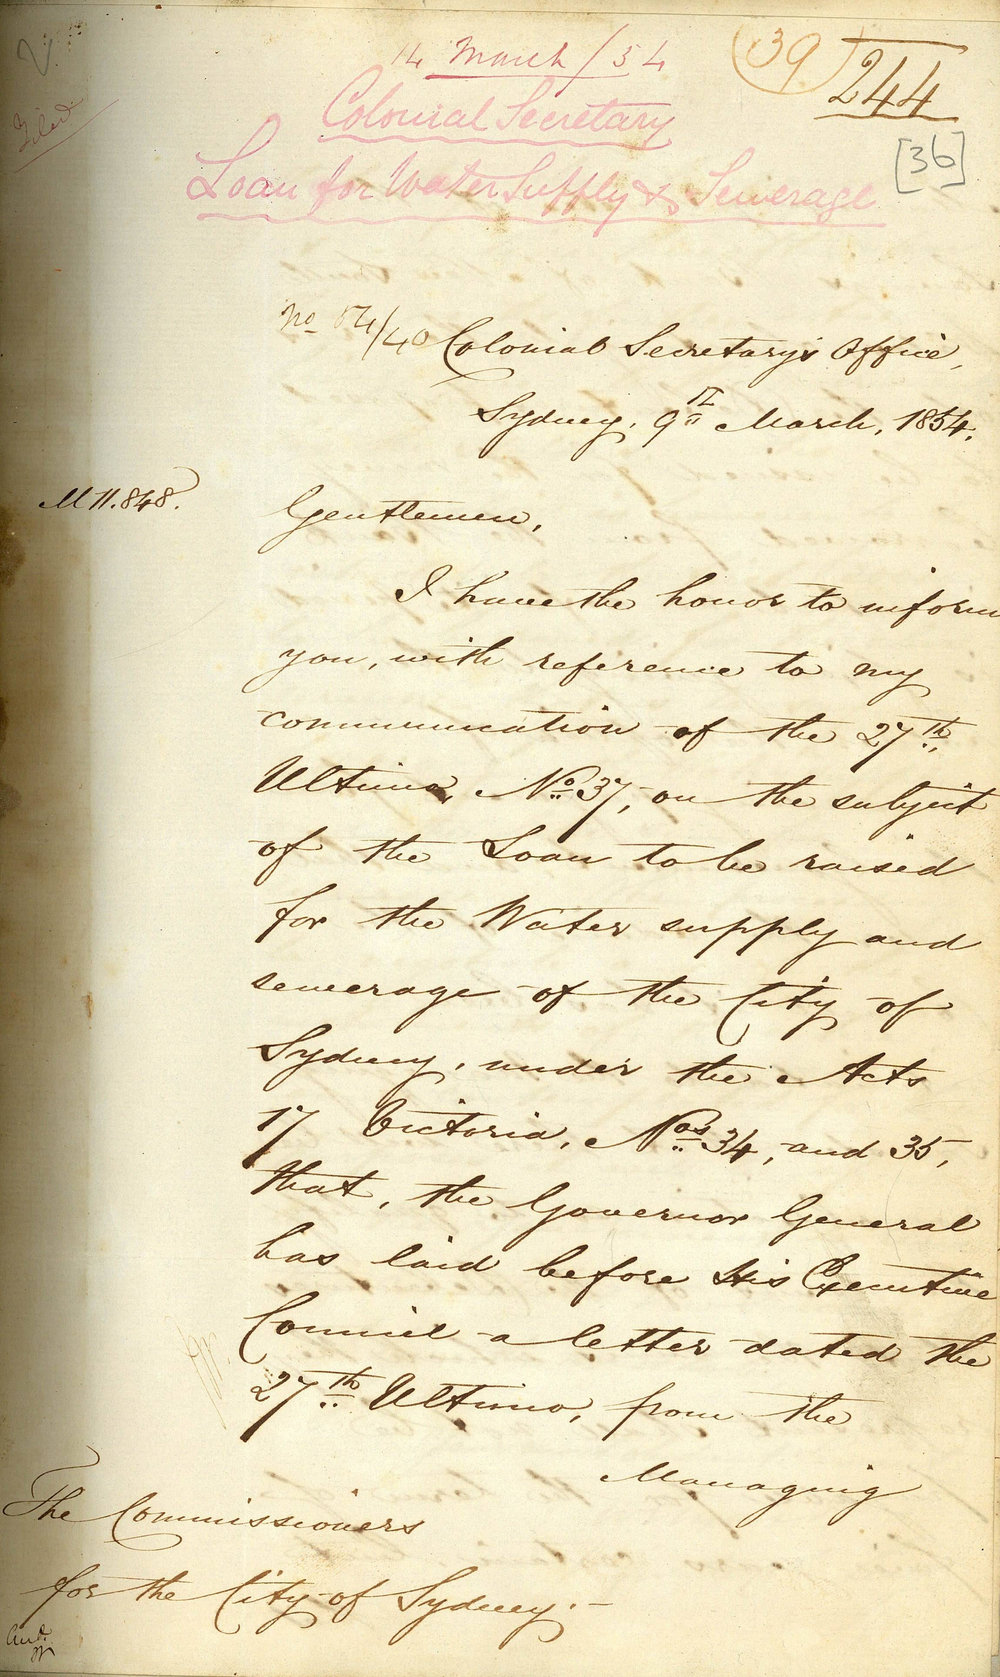 14 March / 54
(39)
244
[36]
Filed
Colonial Secretary
Loan for Water Supply & Sewerage
No 54/40
Colonial Secretary's Office,
Sydney, 9th March, 1854.
M 11.848.
Gentlemen,
I have the honor to inform
you, with reference to my
communication of the 27th
Ultimo, No 37, on the subject
of the Loan to be raised
for the Water supply and
sewerage of the City of
Sydney, under the Acts
17 Victoria, Nos 34, and 35,
that, the Governor General
has laid before His Executive
Council a letter dated the
27th Ultimo, from the
Managing
The Commissioners
for the City of Sydney.